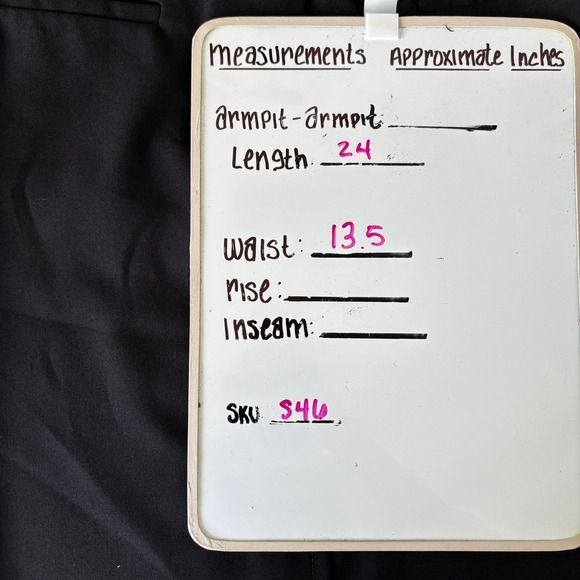 measurements Approximate Inches
armpit-armpit:
Length 24
waist: 13.5
rise:
Inseam:
SKU S46